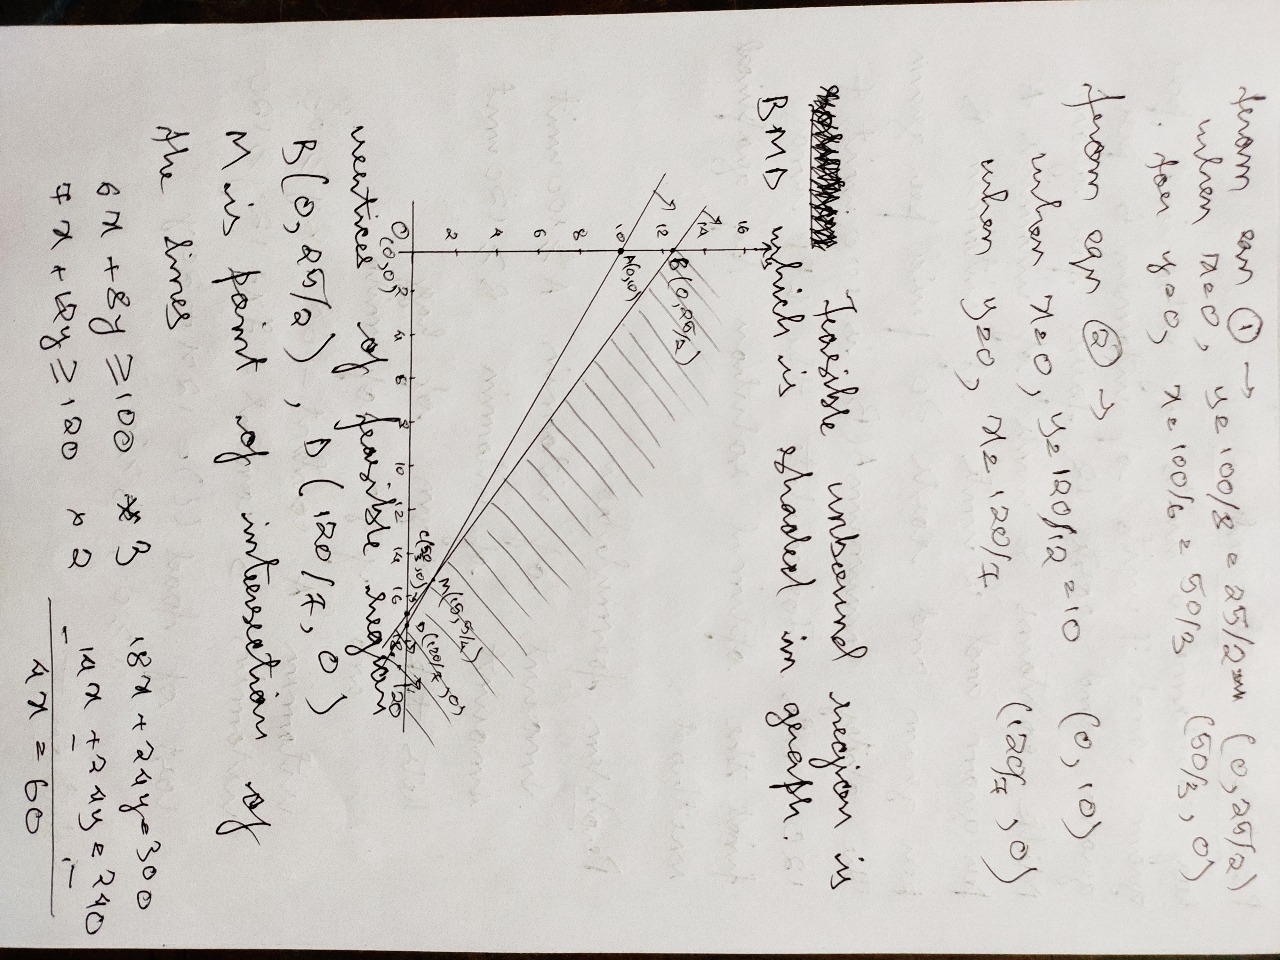 from eqn ① →
when x=0, y=100/8 = 25/2 (0,25/2)
for y=0, x=100/6 = 50/3 (50/3, 0)
from eqn ② →
when x=0, y=120/12=10 (0,10)
when y=0, x=120/7 (120/7, 0)
Feasible unbound region is
BMD which is shaded in graph.
16
14
12
10
8
6
4
2
B(0,25/2)
A(0,10)
O
(0,0)
2 4 6 8 10 12 14 16 18 20
C(50/3,0)
M(15,5/4)
D(120/7,0)
vertices of feasible region
B(0, 25/2), D(120/7, 0)
M is point of intersection of
the lines
6x + 8y ≥ 100 × 3 18x + 24y = 300
7x + 12y ≥ 120 × 2 14x + 24y = 240
- - -
4x = 60